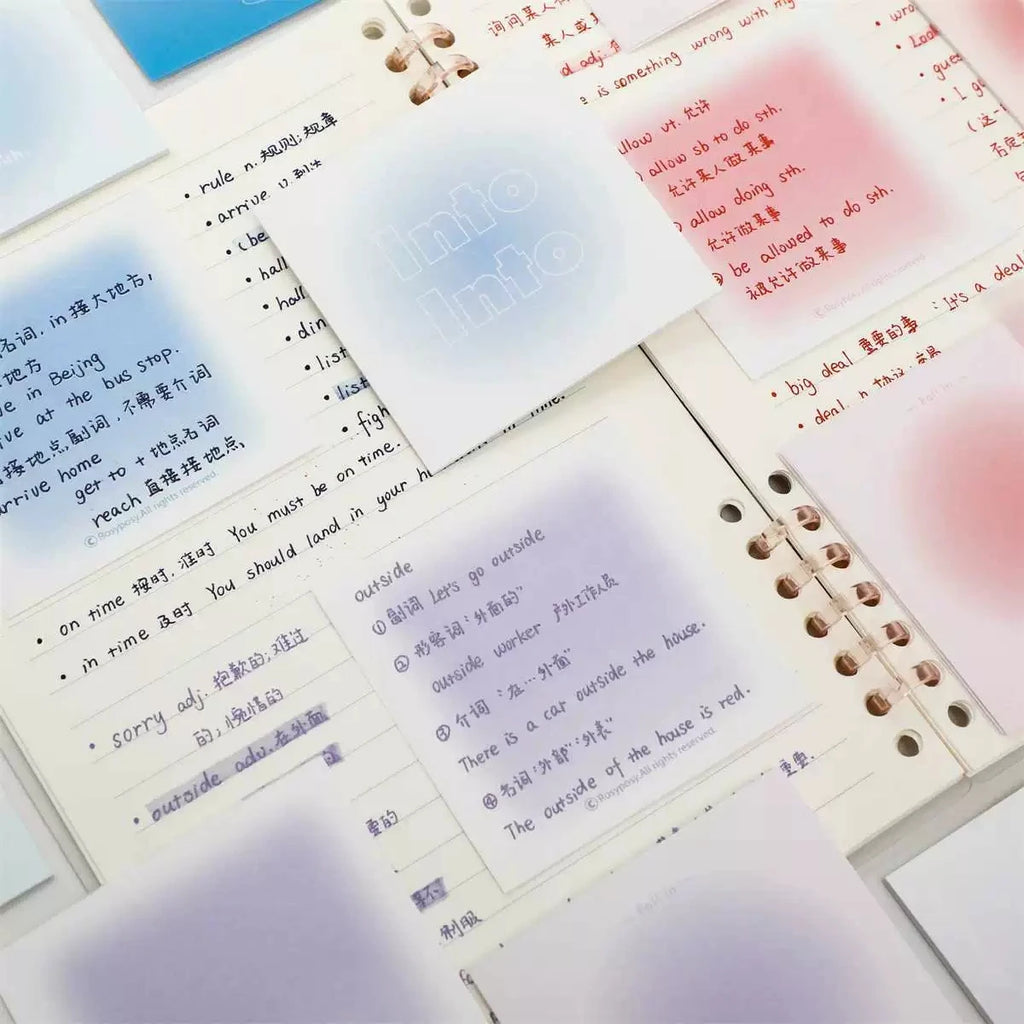 询问某人
某人或某
adj.
is something wrong with my
• wro
• Look
• gues
• I gu
(这一
否定
• rule n. 规则;规章
• arrive v. 到达
• (be
• hall
• hall
• din
• list
• list
• figh
in time.
Into
Into
llow vt. 允许
allow sb to do sth.
允许某人做某事
allow doing sth.
允许做某事
be allowed to do sth.
被允许做某事
© Rosyposy.All rights reserved
名词, in 接大地方,
地方
ve in Beijng
ive at the bus stop.
接地点副词,不需要介词
arrive home
get to + 地点名词
reach 直接接地点,
© Rosyposy.All rights reserved
• big deal 重要的事 : It's a deal
• deal n. 协议;交易
• on time 按时, 准时 You must be on time.
• in time 及时 You should land in your h
• sorry adj. 抱歉的;难过
的;惋惜的
• outside adv. 在外面
outside
① 副词 Let's go outside
② 形容词:外面的"
outside worker 户外工作人员
③ 介词:"在…外面"
There is a car outside the house.
④ 名词:"外部";外表"
The outside of the house is red.
© Rosyposy.All rights reserved.
重要.
重的
制服
Fall in
Fall in